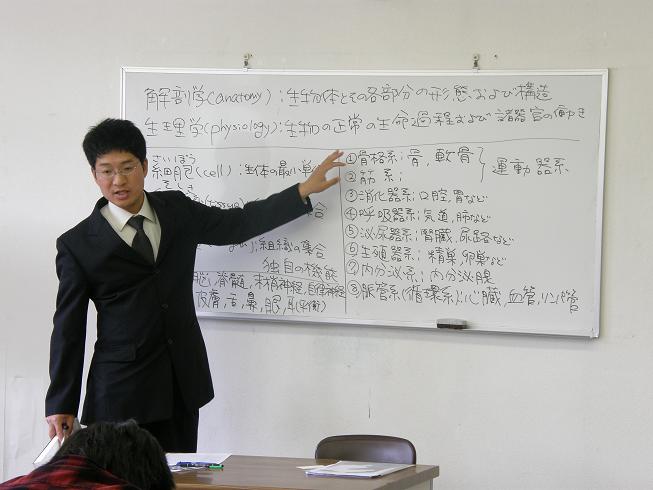 解剖学(anatomy)：生物体とその各部分の形態および構造
生理学(physiology)：生物の正常の生命過程および諸器官の働き
さいぼう
細胞(cell)：生体の最小単
合
組織の集合
独自の機能
脳，脊髄，末梢神経，自律神経
皮膚，舌，鼻，眼，耳(平衡)
①骨格系；骨，軟骨
②筋系；
運動器系
③消化器系；口腔，胃など
④呼吸器系；気道，肺など
⑤泌尿器系；腎臓，尿路など
⑥生殖器系；精巣，卵巣など
⑦内分泌系；内分泌腺
⑧脈管系(循環系)；心臓，血管，リンパ管